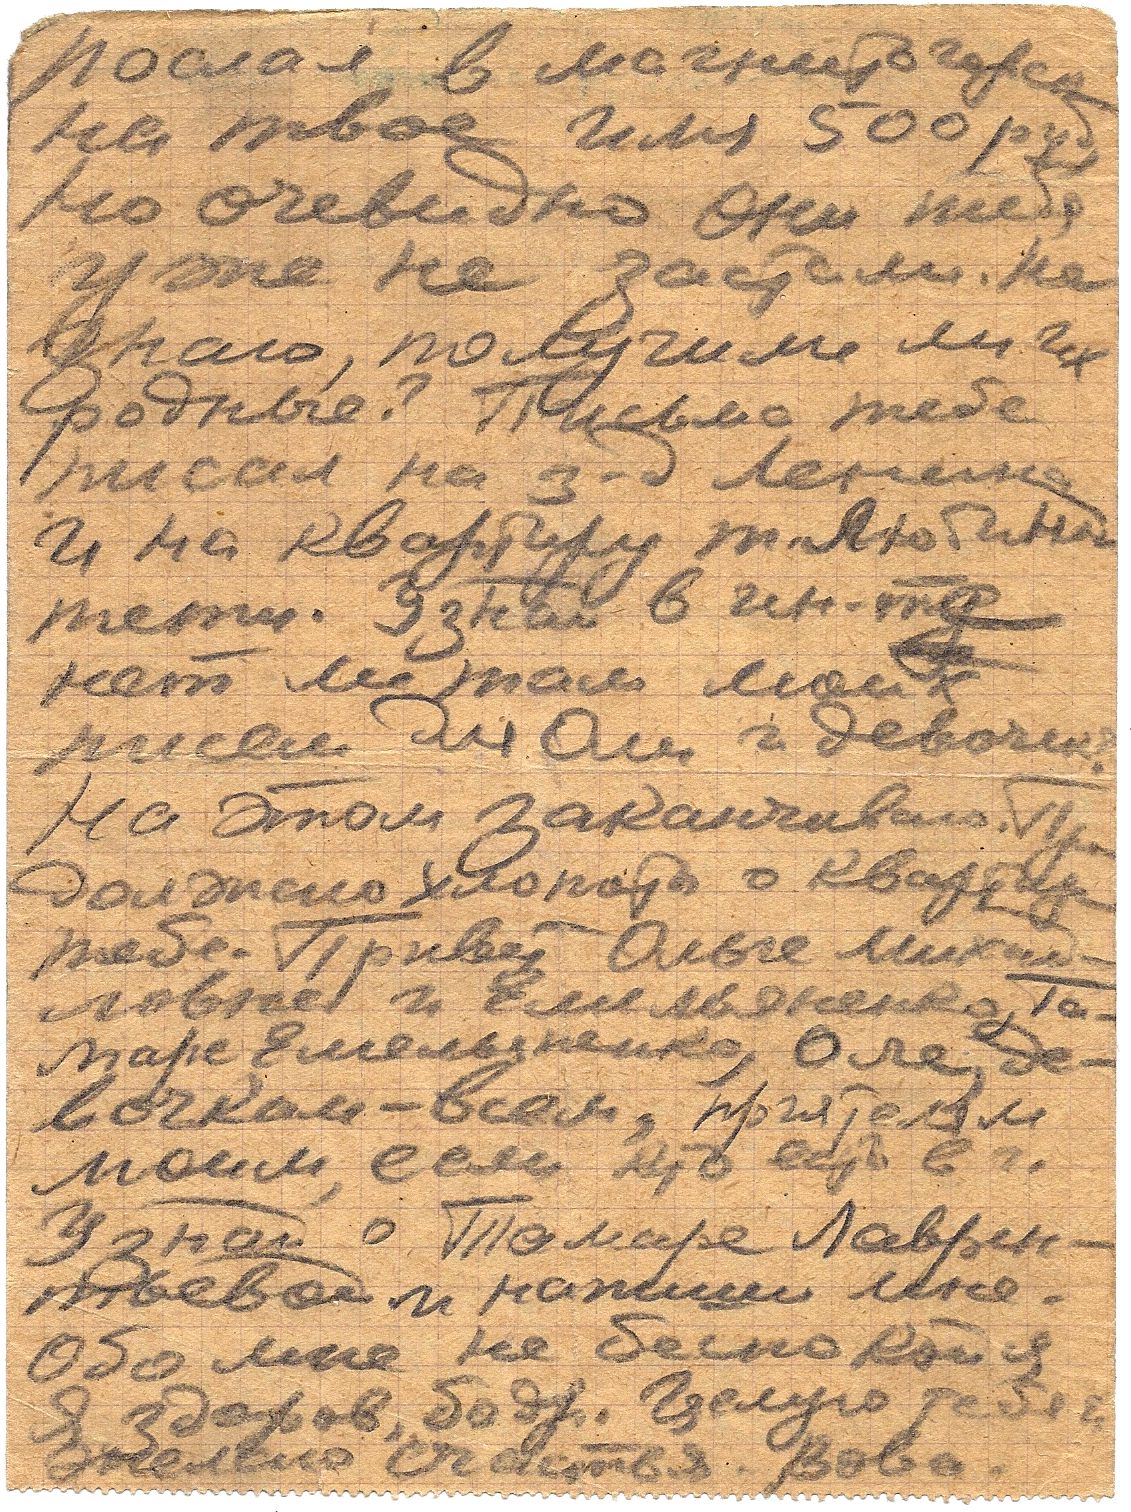 послал в Магнитогорск
на твое имя 500 руб
но очевидно они тебя
уже не застали. Не
знаю, получили ли их
родные? Письмо тебе
писал на з-д Ленина
и на квартиру т. Любиной
тети. Узнай в ин-те
нет ли там моих
писем для Оли и девочек?
На этом заканчиваю. Про
должаю хлопоты о квартире
тебе. Привет Ольге Михай-
ловне и Емильяненко, Та-
маре Емельяненко, Оле, де-
вочкам – всем, приятелям
моим, если кто есть в г.
Узнай о Тамаре Лаврен-
тьевой и напиши мне.
Обо мне не беспокойся
Я здоров, бодр. Целую тебя и
желаю счастья. Вова.